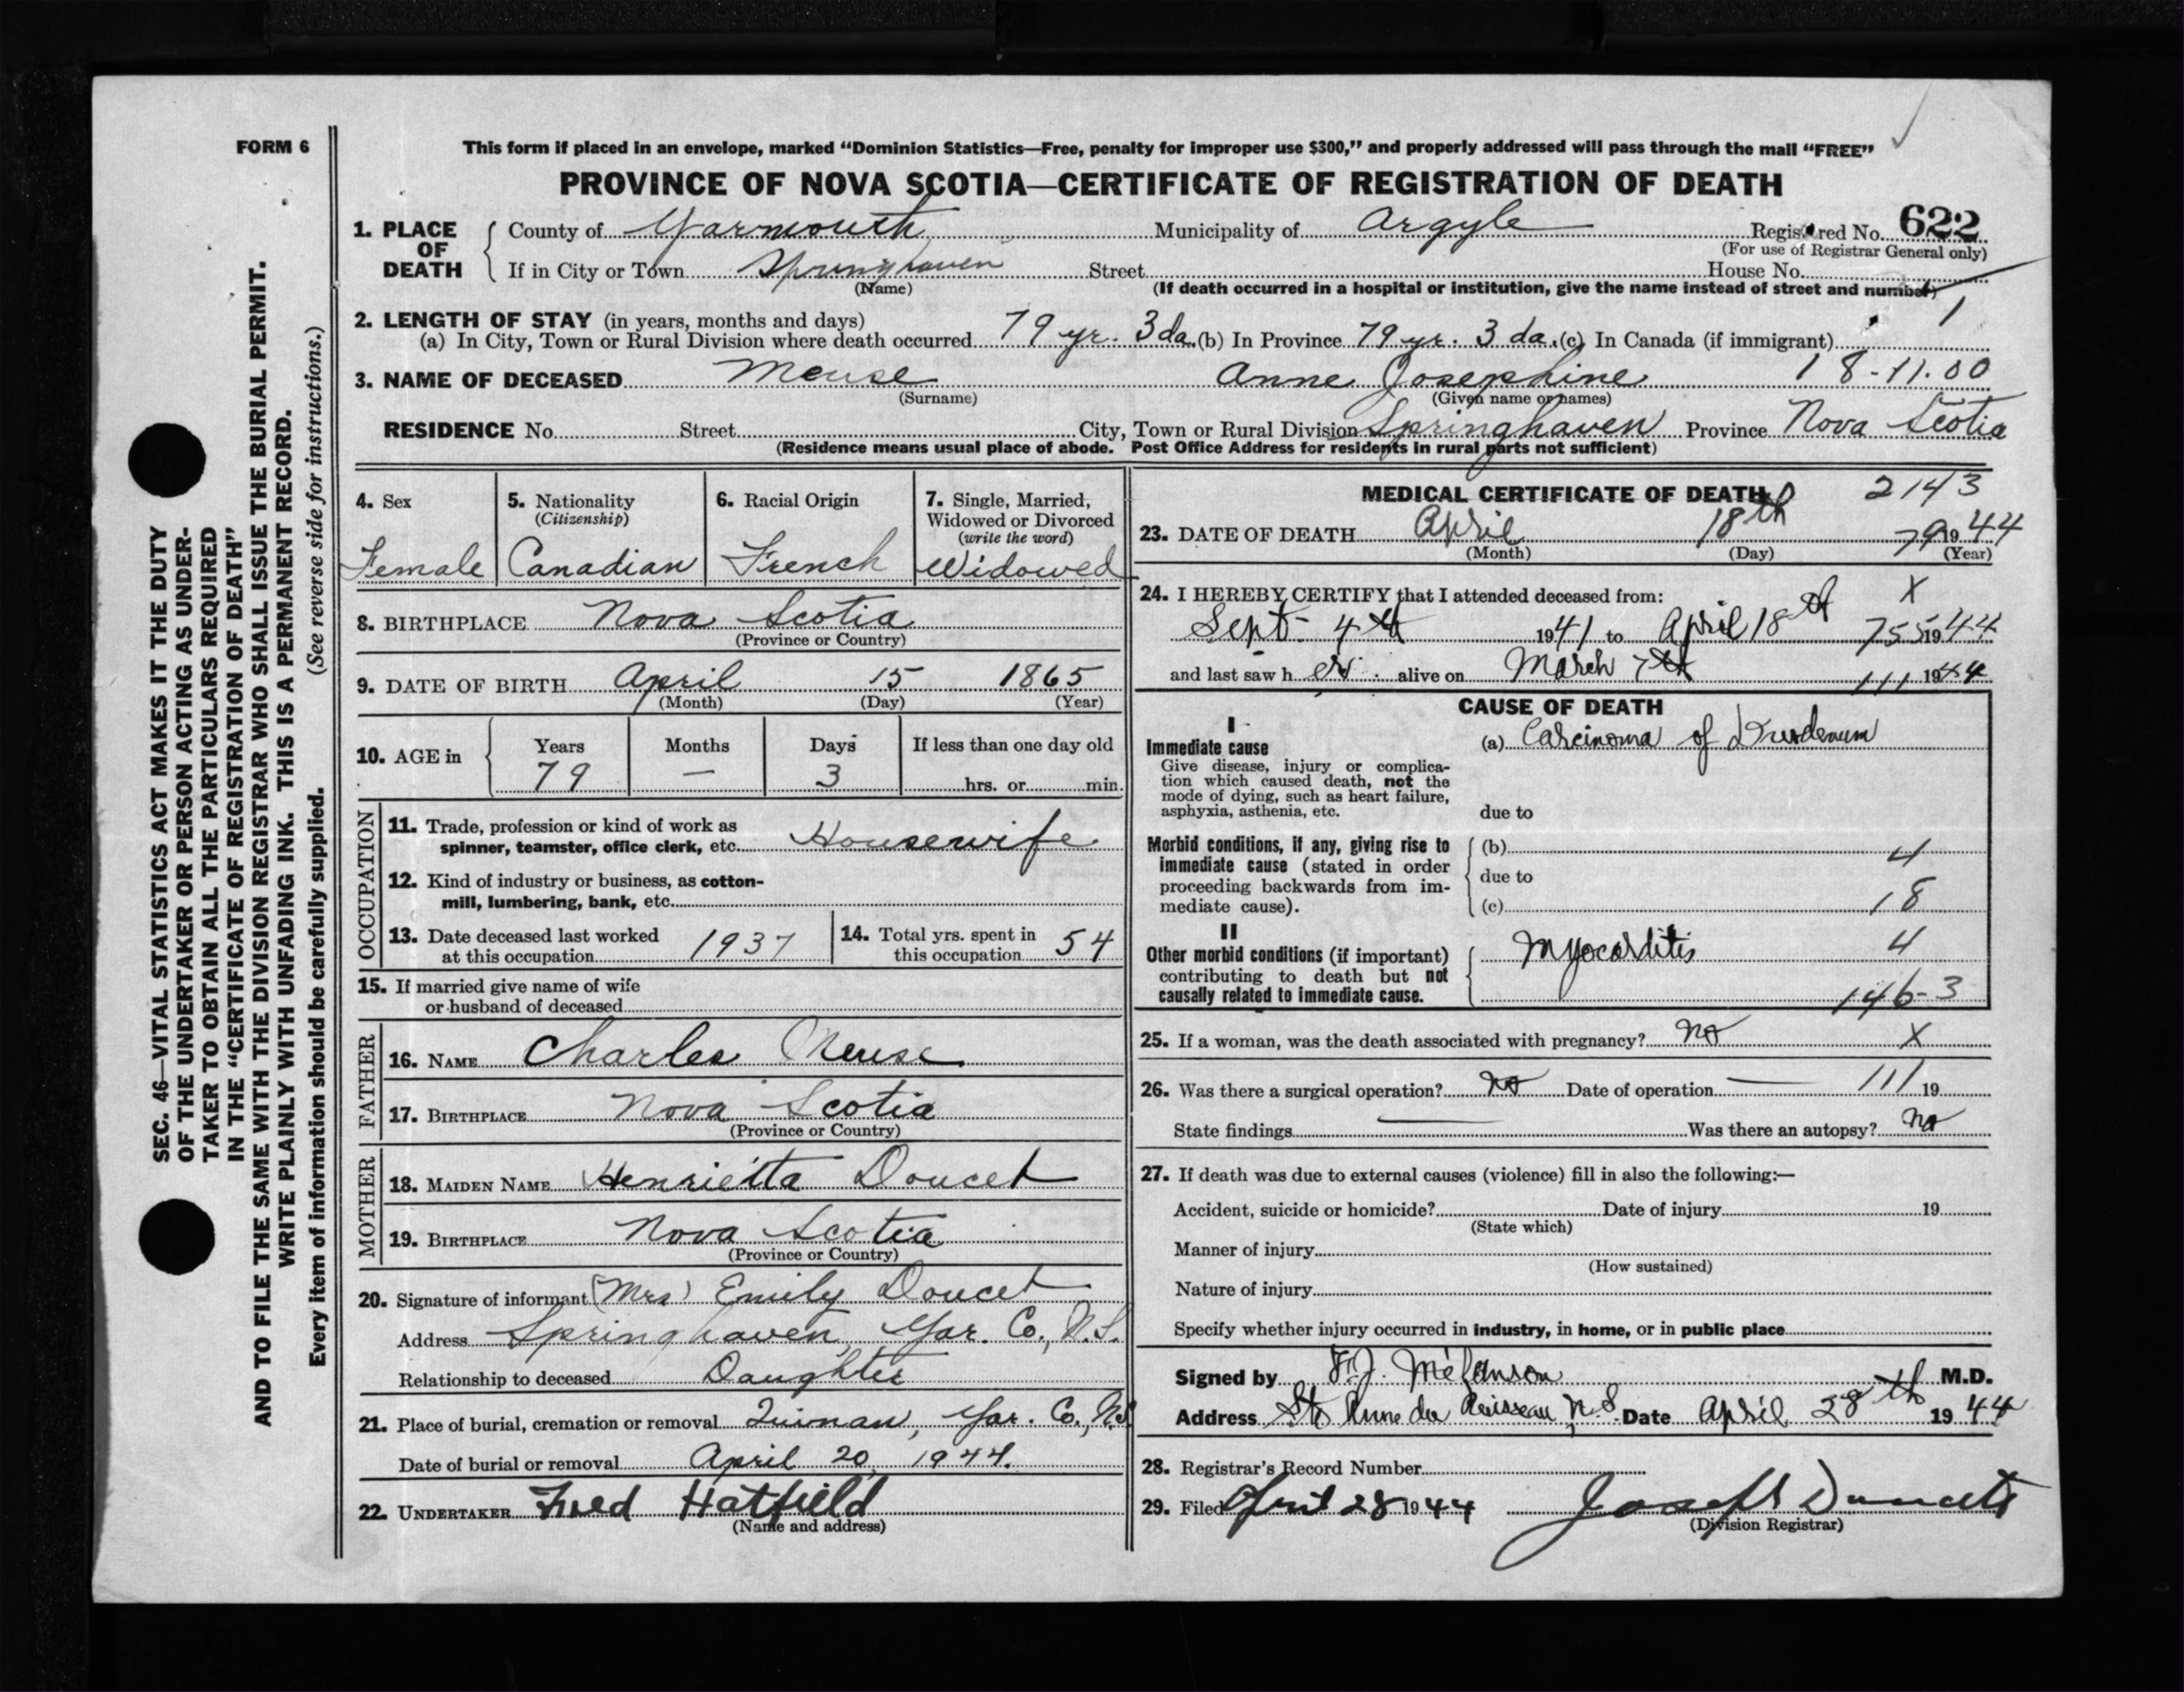 FORM 6
This form if placed in an envelope, marked "Dominion Statistics—Free, penalty for improper use $300," and properly addressed will pass through the mail "FREE"
PROVINCE OF NOVA SCOTIA—CERTIFICATE OF REGISTRATION OF DEATH
1. PLACE OF DEATH County of Yarmouth Municipality of Argyle Registered No. 622
(For use of Registrar General only)
If in City or Town Springhaven Street House No.
(Name) (If death occurred in a hospital or institution, give the name instead of street and number)
1
2. LENGTH OF STAY (in years, months and days)
(a) In City, Town or Rural Division where death occurred 79 yr. 3 da. (b) In Province 79 yr. 3 da. (c) In Canada (if immigrant)
3. NAME OF DECEASED Meuse Anne Josephine 18-11.00
(Surname) (Given name or names)
RESIDENCE No. Street City, Town or Rural Division Springhaven Province Nova Scotia
(Residence means usual place of abode. Post Office Address for residents in rural parts not sufficient)
4. Sex 5. Nationality 6. Racial Origin 7. Single, Married,
(Citizenship) Widowed or Divorced
(write the word)
Female Canadian French Widowed
8. BIRTHPLACE Nova Scotia
(Province or Country)
9. DATE OF BIRTH April 15 1865
(Month) (Day) (Year)
10. AGE in Years Months Days If less than one day old
79 — 3 hrs. or min.
OCCUPATION
11. Trade, profession or kind of work as
spinner, teamster, office clerk, etc. Housewife
12. Kind of industry or business, as cotton-
mill, lumbering, bank, etc.
13. Date deceased last worked
at this occupation 1937
14. Total yrs. spent in
this occupation 54
15. If married give name of wife
or husband of deceased
FATHER
16. NAME Charles Meuse
17. BIRTHPLACE Nova Scotia
(Province or Country)
MOTHER
18. MAIDEN NAME Henrietta Doucet
19. BIRTHPLACE Nova Scotia
(Province or Country)
20. Signature of informant (Mrs) Emily Doucet
Address Springhaven, Yar. Co., N.S.
Relationship to deceased Daughter
21. Place of burial, cremation or removal Quinan, Yar. Co., N.S
Date of burial or removal April 20, 1944.
22. UNDERTAKER Fred Hatfield
(Name and address)
MEDICAL CERTIFICATE OF DEATH 2143
23. DATE OF DEATH April 18th 79 1944
(Month) (Day) (Year)
24. I HEREBY CERTIFY that I attended deceased from: X
Sept. 4th 1941 to April 18th 755 1944
and last saw her alive on March 7th 111 1944
CAUSE OF DEATH
I
Immediate cause (a) Carcinoma of Duodenum
Give disease, injury or complica-
tion which caused death, not the
mode of dying, such as heart failure,
asphyxia, asthenia, etc. due to
Morbid conditions, if any, giving rise to (b) 4
immediate cause (stated in order
proceeding backwards from im- due to
mediate cause). (c) 18
II
Other morbid conditions (if important) Myocarditis 4
contributing to death but not
causally related to immediate cause. 146-3
25. If a woman, was the death associated with pregnancy? No X
26. Was there a surgical operation? No Date of operation — 111 19
State findings — Was there an autopsy? No
27. If death was due to external causes (violence) fill in also the following:—
Accident, suicide or homicide? Date of injury 19
(State which)
Manner of injury
(How sustained)
Nature of injury
Specify whether injury occurred in industry, in home, or in public place
Signed by F. J. Mélanson M.D.
Address Ste Anne du Ruisseau, N.S. Date April 28th 1944
28. Registrar's Record Number
29. Filed April 28 1944 Joseph Doucette
(Division Registrar)
SEC. 46—VITAL STATISTICS ACT MAKES IT THE DUTY
OF THE UNDERTAKER OR PERSON ACTING AS UNDER-
TAKER TO OBTAIN ALL THE PARTICULARS REQUIRED
IN THE "CERTIFICATE OF REGISTRATION OF DEATH"
AND TO FILE THE SAME WITH THE DIVISION REGISTRAR WHO SHALL ISSUE THE BURIAL PERMIT.
WRITE PLAINLY WITH UNFADING INK. THIS IS A PERMANENT RECORD.
Every item of information should be carefully supplied. (See reverse side for instructions.)